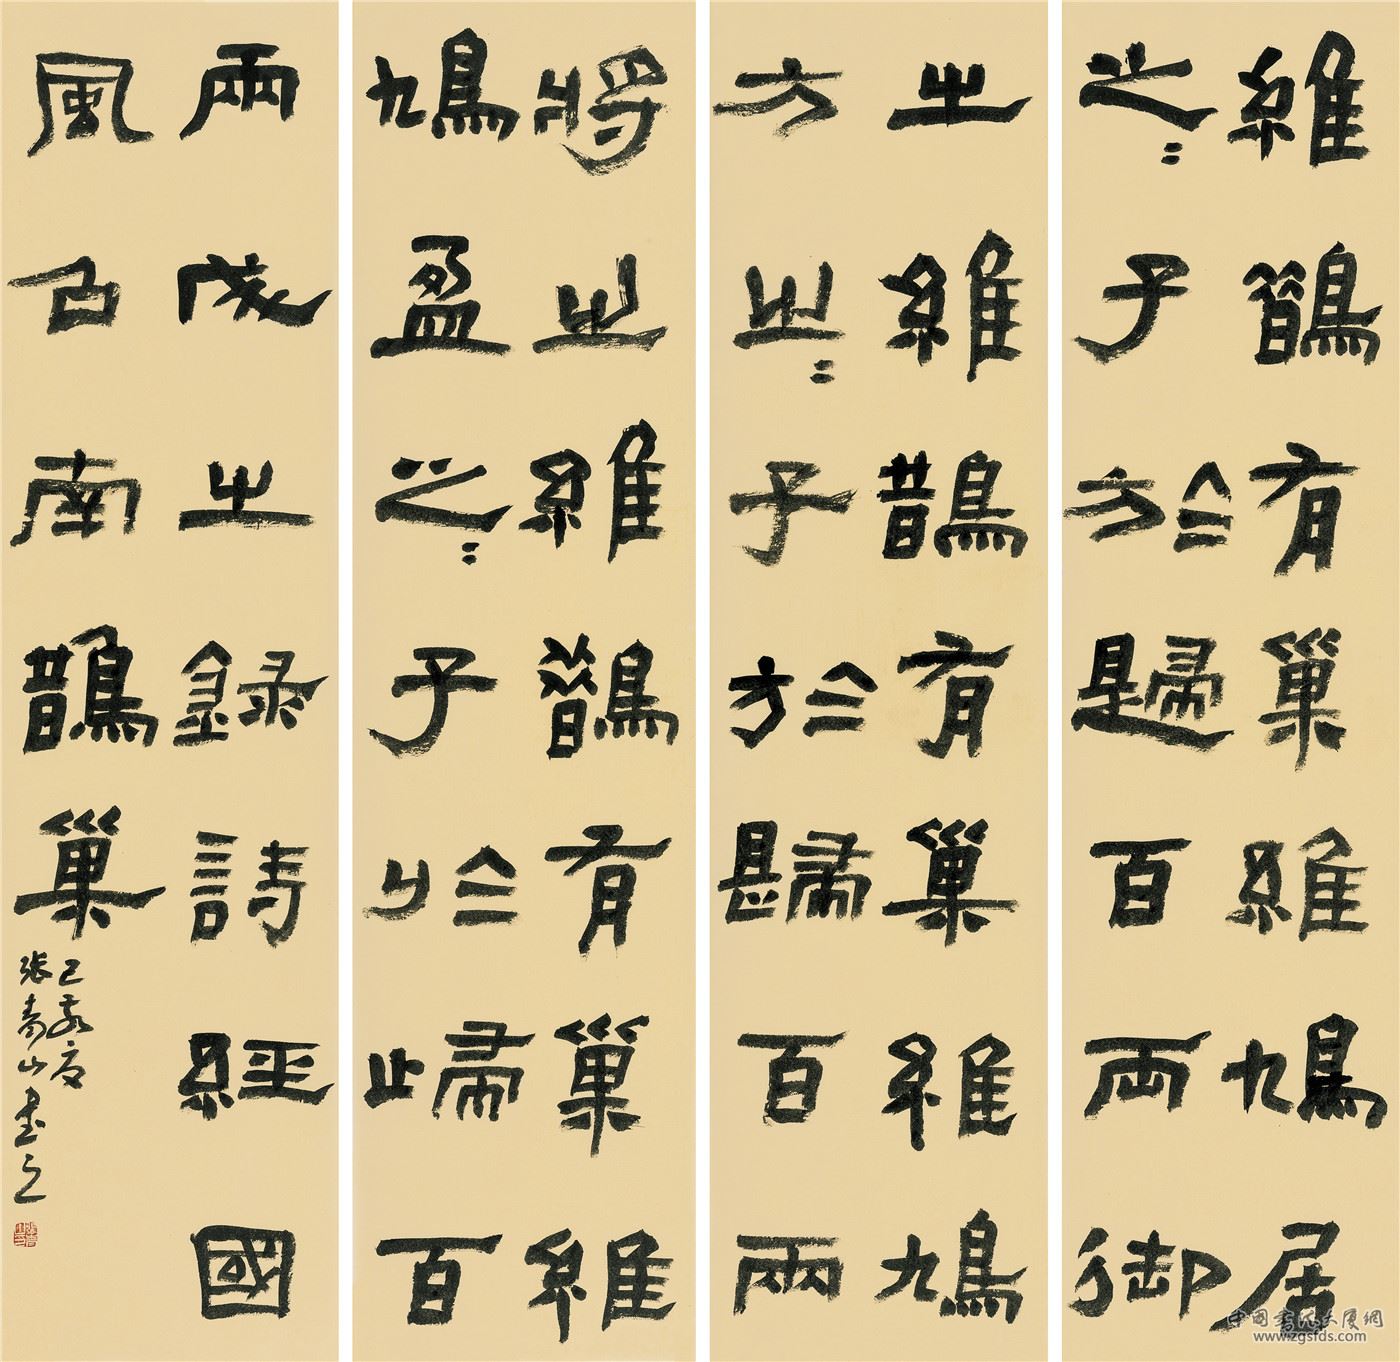 維鵲有巢維鳩居
之〻子於歸百兩御
之維鵲有巢維鳩
方之〻子於歸百兩
將之維鵲有巢維
鳩盈之〻子於歸百
兩成之錄詩經國
風召南鵲巢
己亥夏
張青山書之
中国书法大展網
www.zgsfds.com